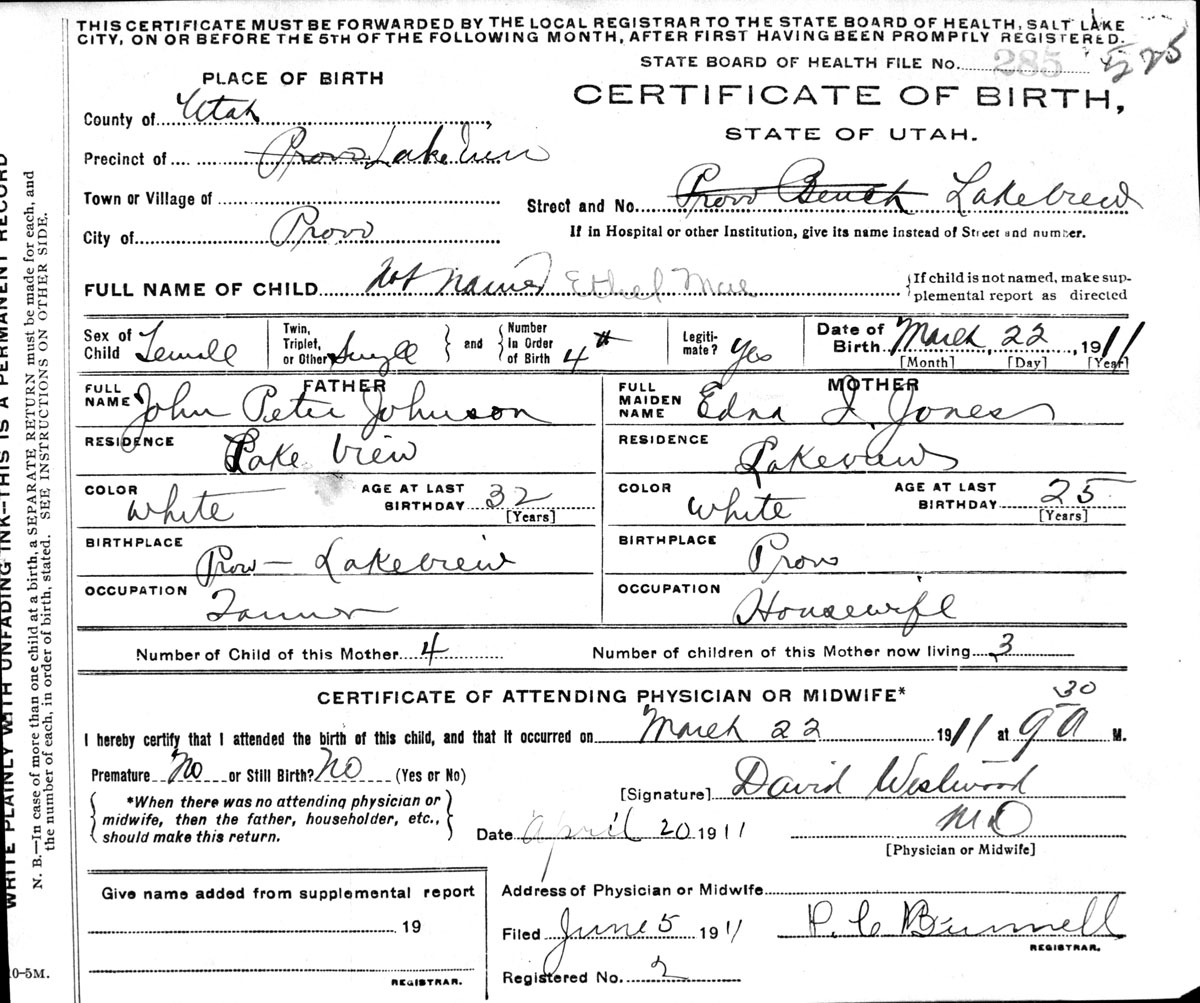 THIS CERTIFICATE MUST BE FORWARDED BY THE LOCAL REGISTRAR TO THE STATE BOARD OF HEALTH, SALT LAKE
CITY, ON OR BEFORE THE 5TH OF THE FOLLOWING MONTH, AFTER FIRST HAVING BEEN PROMPTLY REGISTERED.
STATE BOARD OF HEALTH FILE No. 285
225
PLACE OF BIRTH
CERTIFICATE OF BIRTH,
STATE OF UTAH.
County of Utah
Precinct of Provo Lake View
Town or Village of
Street and No. Provo Bench Lakeview
City of Provo
If in Hospital or other Institution, give its name instead of Street and number.
FULL NAME OF CHILD Not Named Ethel Mae
{If child is not named, make sup-
plemental report as directed
Sex of Child Female
Twin, Triplet, or Other Single } and { Number In Order of Birth 4th
Legiti-mate? Yes
Date of Birth March 22, 1911
[Month] [Day] [Year]
FATHER
FULL NAME John Peter Johnson
MOTHER
FULL MAIDEN NAME Edna I. Jones
RESIDENCE Lake View
RESIDENCE Lakeview
COLOR White AGE AT LAST BIRTHDAY 32 [Years]
COLOR White AGE AT LAST BIRTHDAY 25 [Years]
BIRTHPLACE Provo — Lakeview
BIRTHPLACE Provo
OCCUPATION
OCCUPATION Housewife
Number of Child of this Mother 4
Number of children of this Mother now living 3
CERTIFICATE OF ATTENDING PHYSICIAN OR MIDWIFE*
I hereby certify that I attended the birth of this child, and that it occurred on March 22 1911 at 9 30 a M.
Premature No or Still Birth? No (Yes or No)
[Signature] David Westwood
*When there was no attending physician or
midwife, then the father, householder, etc.,
should make this return.
Date April 20 1911
MD
[Physician or Midwife]
Give name added from supplemental report
19
REGISTRAR.
Address of Physician or Midwife
Filed June 5 1911
P. C. Bunnell
REGISTRAR.
Registered No. 2
WRITE PLAINLY WITH UNFADING INK--THIS IS A PERMANENT RECORD
N. B.—In case of more than one child at a birth, a SEPARATE RETURN must be made for each, and
the number of each, in order of birth, stated. SEE INSTRUCTIONS ON OTHER SIDE.
0-5M.